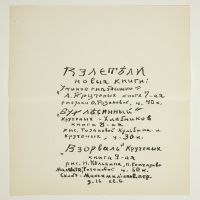 ВЗЛЕТѢЛИ
новыя книги:
Утиное гнѣздышко
А. Крученых книга 7-ая
рисунки О. Розановой, ц. 40 к.
Бух лѣсинный
Крученых - Хлѣбников
книга 8-ая
рис. Розановой Кульбина и
Крученых, ц. 30 к.
Взорваль Крученых
книга 9-ая
рис. Н. Кульбина, Н. Гончарово
Малевич, Розановой ц. 60 к.